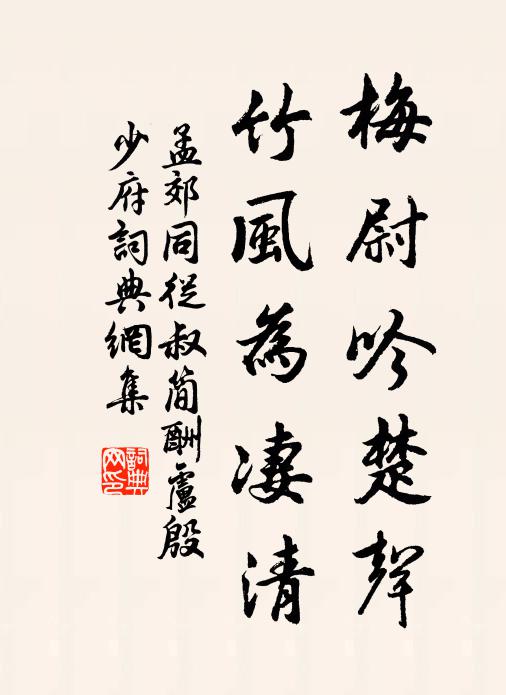 梅尉吟楚聲
竹風為凄清
孟郊同從叔簡酬盧殷
少府詞典網集
詞典网印